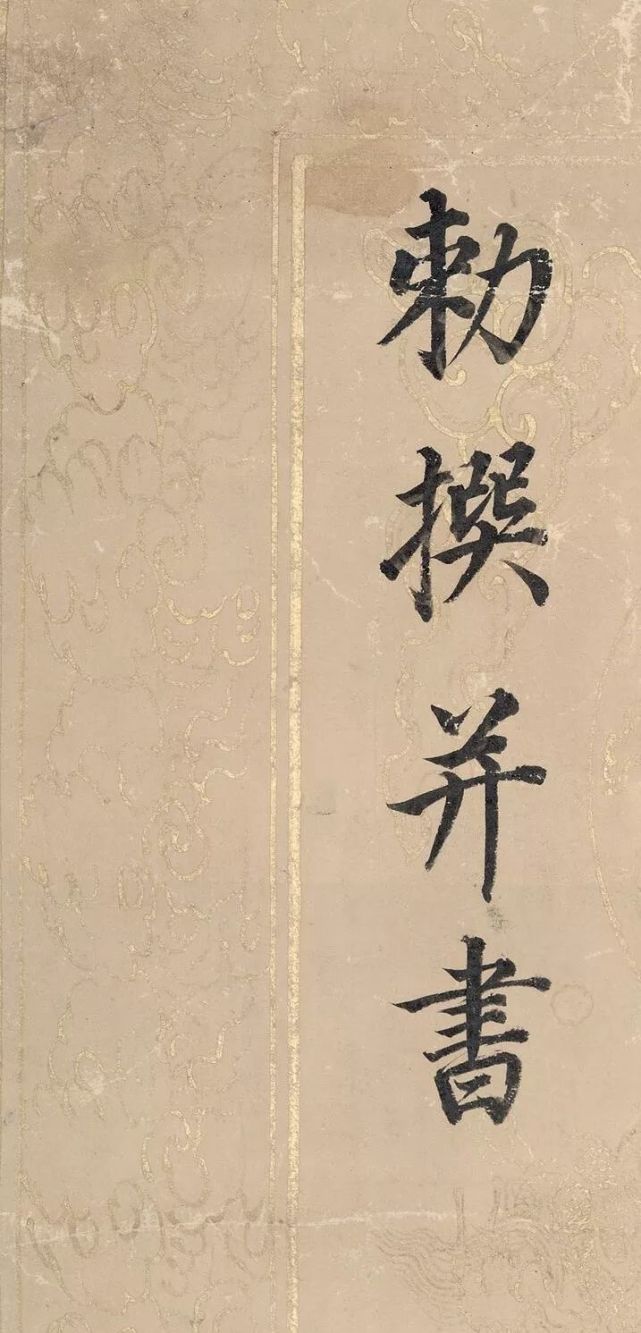 勅撰并書